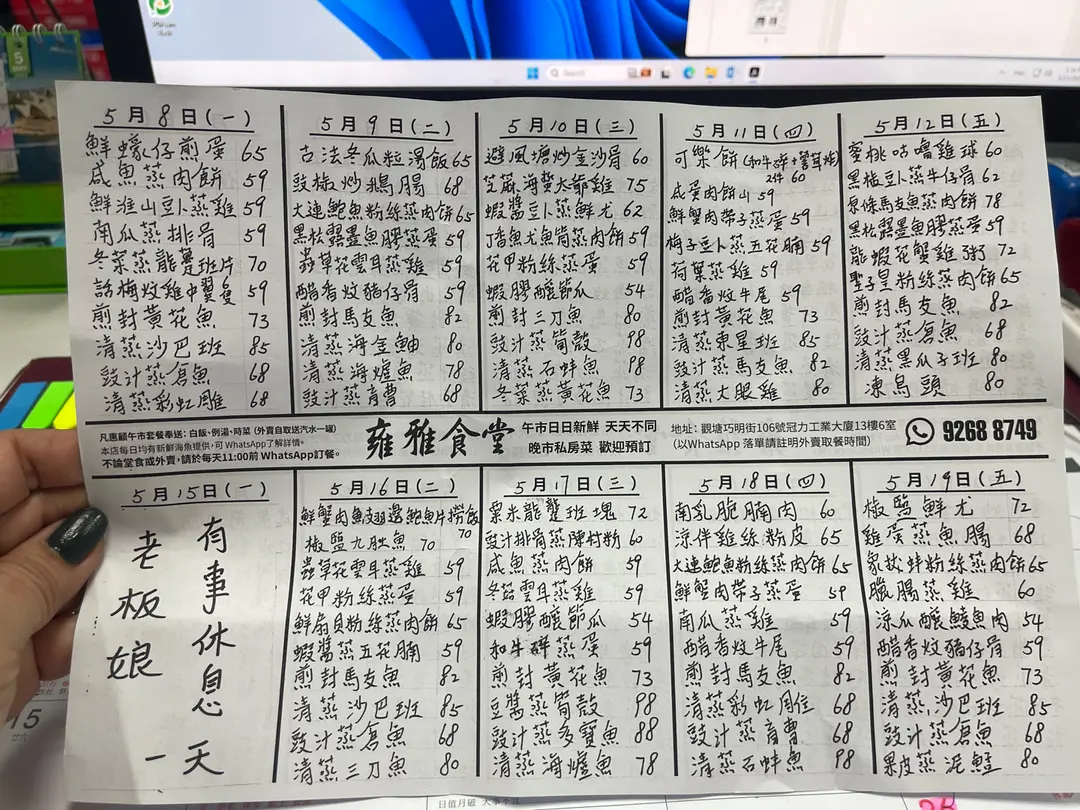 5月8日(一)
鮮蠔仔煎蛋 65
咸魚蒸肉餅 59
鮮淮山豆卜蒸雞 59
南瓜蒸排骨 59
冬菜蒸龍躉班片 70
話梅炆雞中翼 59
煎封黃花魚 73
清蒸沙巴班 85
豉汁蒸倉魚 68
清蒸彩虹雕 68
5月9日(二)
古法冬瓜粒湯飯 65
豉椒炒鵝腸 68
大連鮑魚粉絲蒸肉餅 65
黑松露墨魚膠蒸蛋 59
蟲草花雲耳蒸雞 59
醋香炆豬仔骨 59
煎封馬友魚 82
清蒸海金鮋 80
清蒸海爐魚 78
豉汁蒸青曹 68
5月10日(三)
避風塘炒金沙骨 60
芝麻海蜇大爺雞 75
蝦醬豆卜蒸鮮尤 62
丁香魚尤魚筒蒸肉餅 59
花甲粉絲蒸蛋 59
蝦膠釀節瓜 54
煎封三刀魚 80
豉汁蒸筍殼 98
清蒸石蚌魚 98
冬菜蒸黃花魚 73
5月11日(四)
可樂餅(和牛碎+
2件 60
咸蛋肉餅山 59
鮮蟹肉帶子蒸蛋 59
梅子豆卜蒸五花腩 59
荷葉蒸雞 59
醋香炆牛尾 59
煎封黃花魚 73
清蒸東星班 85
豉汁蒸馬友魚 82
清蒸大眼雞 80
5月12日(五)
蜜桃咕嚕雞球 60
黑椒豆卜蒸牛仔骨 62
原條馬友魚蒸肉餅 78
黑松露墨魚膠蒸蛋 59
龍蝦花蟹雞粥 72
聖子皇粉絲蒸肉餅 65
煎封馬友魚 82
豉汁蒸倉魚 68
清蒸黑瓜子班 80
凍烏頭 80
凡惠顧午市套餐奉送：白飯、例湯、時菜 (外賣自取送汽水一罐)
本店每日均有新鮮海魚提供，可 WhatsApp了解詳情。
不論堂食或外賣，請於每天11:00前 WhatsApp訂餐。
雍雅食堂
午市日日新鮮 天天不同
晚市私房菜 歡迎預訂
地址：觀塘巧明街106號冠力工業大廈13樓6室
(以WhatsApp 落單請註明外賣取餐時間)
9268 8749
5月15日(一)
老板娘
有事休息
一天
5月16日(二)
鮮蟹肉魚翅邊鮑魚片撈飯 70
椒盐九肚魚 70
蟲草花雲耳蒸雞 59
花甲粉絲蒸蛋 59
鮮扇貝粉絲蒸肉餅 65
蝦醬蒸五花腩 59
煎封馬友魚 82
清蒸沙巴班 85
豉汁蒸倉魚 68
清蒸三刀魚 80
5月17日(三)
粟米龍躉班塊 72
豉汁排骨蒸陳村粉 60
咸魚蒸肉餅 59
冬菇雲耳蒸雞 59
蝦膠釀節瓜 54
和牛碎蒸蛋 59
煎封黃花魚 73
豆醬蒸筍殼 98
豉汁蒸多寶魚 88
清蒸海爐魚 78
5月18日(四)
南乳脆腩肉 60
涼伴雞絲粉皮 65
大連鮑魚粉絲蒸肉餅 65
鮮蟹肉帶子蒸蛋 59
南瓜蒸雞 59
醋香炆牛尾 59
煎封馬友魚 82
清蒸彩虹雕 68
豉汁蒸青曹 68
清蒸石蚌魚 98
5月19日(五)
椒盐鮮尤 72
雞蛋蒸魚腸 68
家妝拌粉絲蒸肉餅 65
臘腸蒸雞 60
涼瓜釀鯪魚肉 54
醋香炆豬仔骨 59
煎封黃花魚 73
清蒸沙巴班 85
豉汁蒸倉魚 68
果皮蒸泥鯭 80
Search
5
15